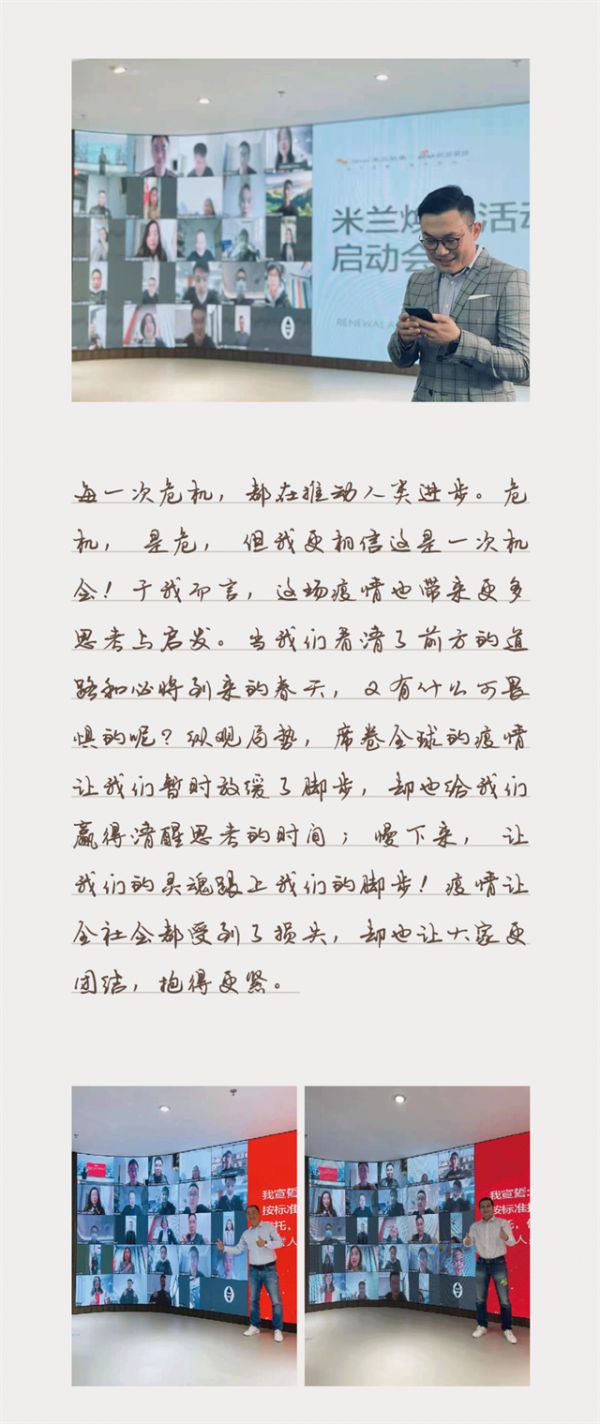 米兰焕
活动
启动会
RENEWAL A
每一次危机，都在推动人类进步。危
机， 是危， 但我更相信这是一次机
会！于我而言，这场疫情也带来更多
思考与启发。当我们看清了前方的道
路和必将到来的春天，又有什么可畏
惧的呢？纵观局势，席卷全球的疫情
让我们暂时放缓了脚步，却也给我们
赢得清醒思考的时间；慢下来， 让
我们的灵魂跟上我们的脚步！疫情让
全社会都受到了损失，却也让大家更
团结，抱得更紧。
我宣誓
按标准
托，
人
我宣誓：
按标准
托，
人